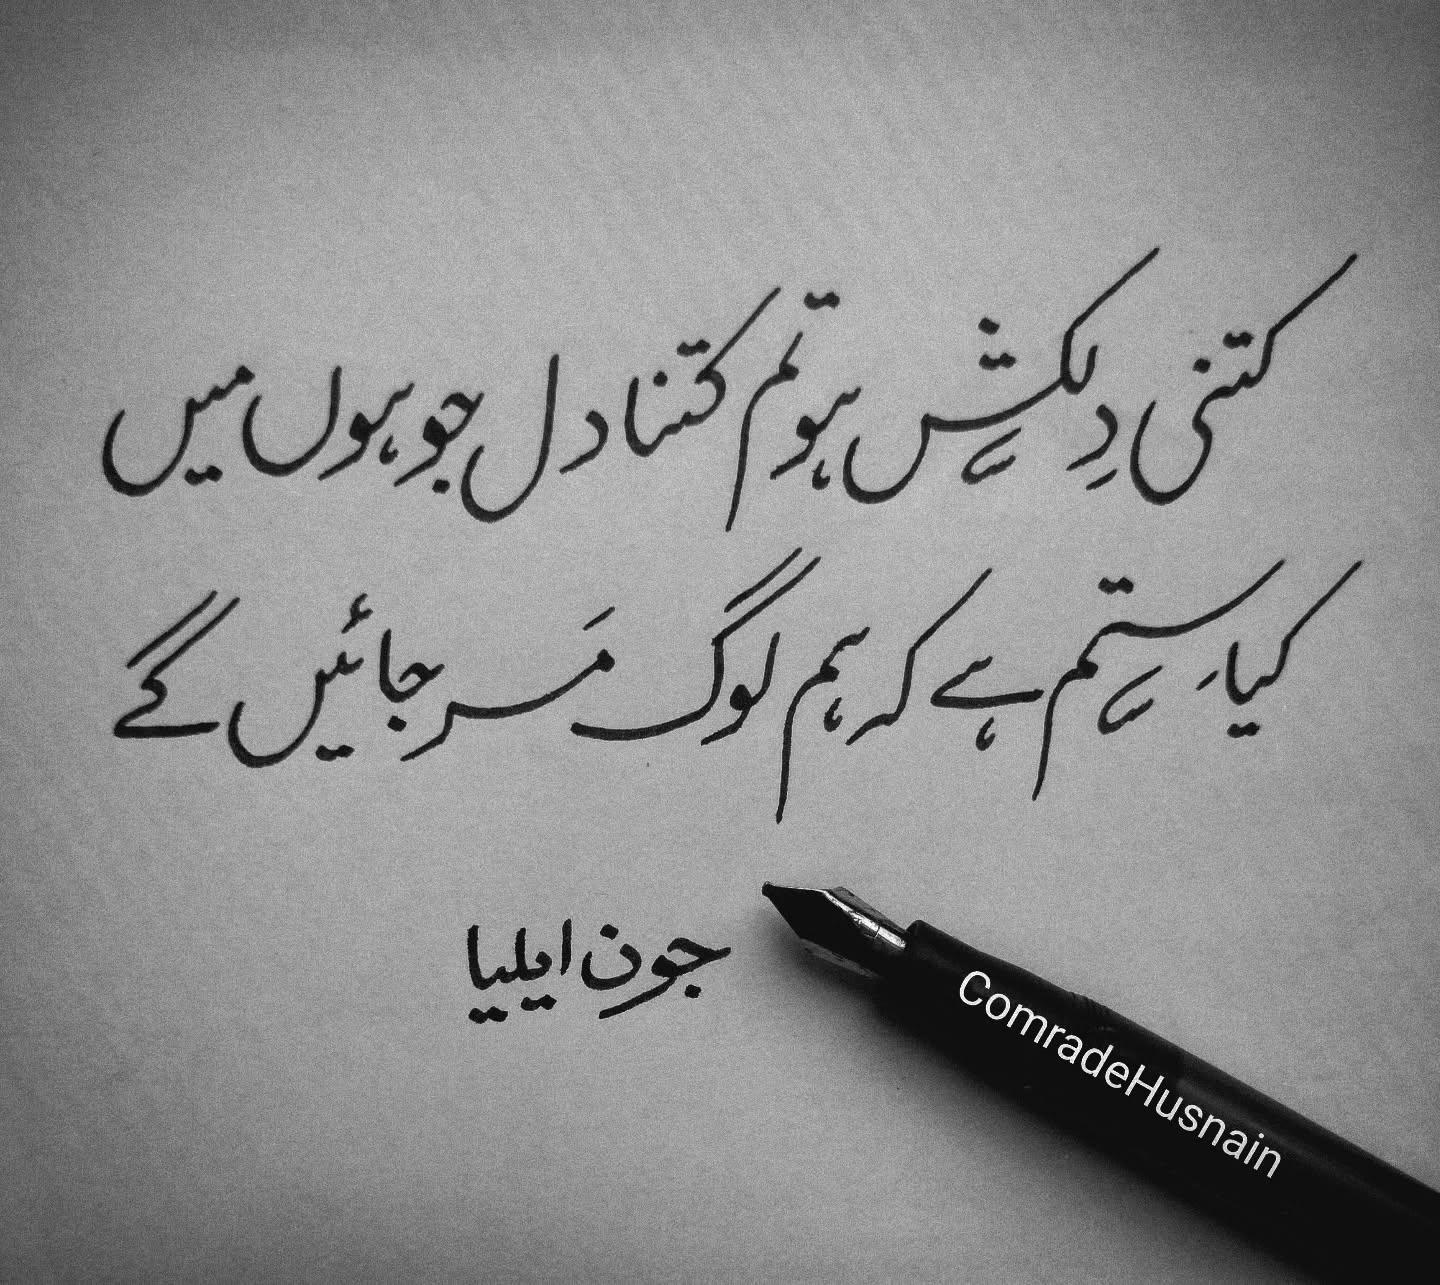 کتنی دِلکش ہو تم کتنا دل جو ہوں میں
کیا سِتم ہے کہ ہم لوگ مَر جائیں گے
جون ایلیا
ComradeHusnain